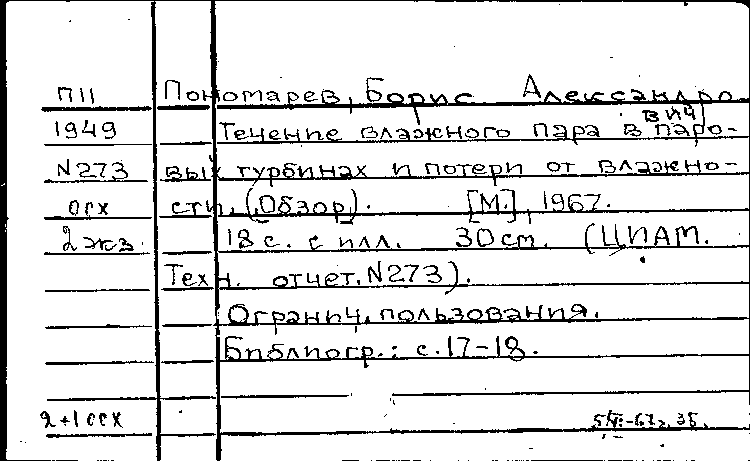 П11 Пономарев, Борис Александро
вич
1949 Течение влажного пара в паро-
N273 вых турбинах и потери от влажно-
осх сти. (Обзор). [М.], 1967.
2 экз. 18 с. с илл. 30 см. (ЦИАМ.
Техн. отчет. N273).
Огранич. пользования.
Библиогр.: с. 17-18.
2+1 осх